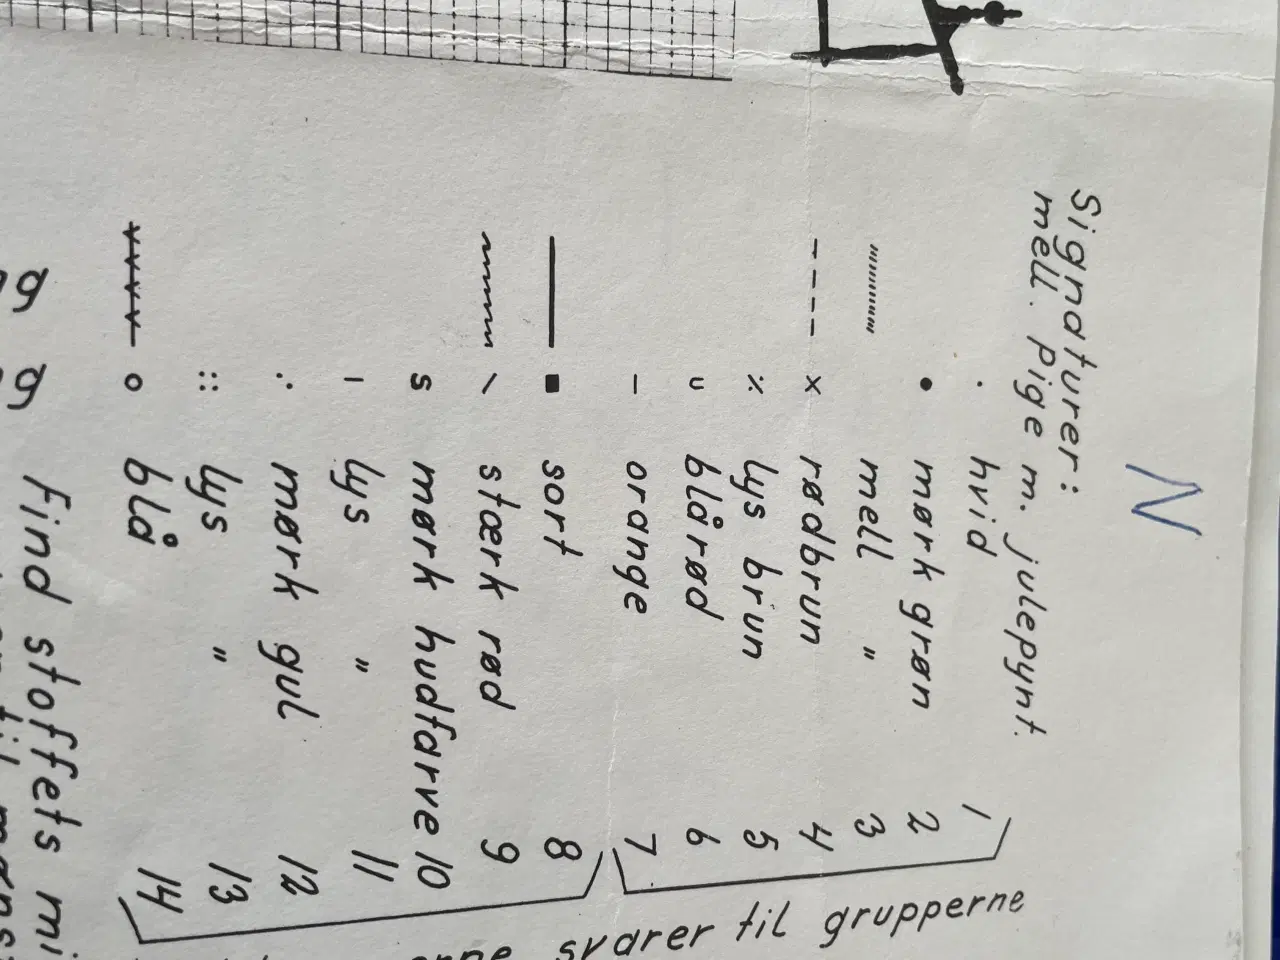 N
Signaturer:
mell. Pige m. julepynt.
· hvid 1
● mørk grøn 2
mell " 3
x rødbrun 4
٪ lys brun 5
u blårød 6
– orange 7
■ sort 8
\ stærk rød 9
s mørk hudfarve 10
ı lys " 11
∴ mørk gul 12
:: lys " 13
o blå 14
svarer til grupperne
Find stoffets